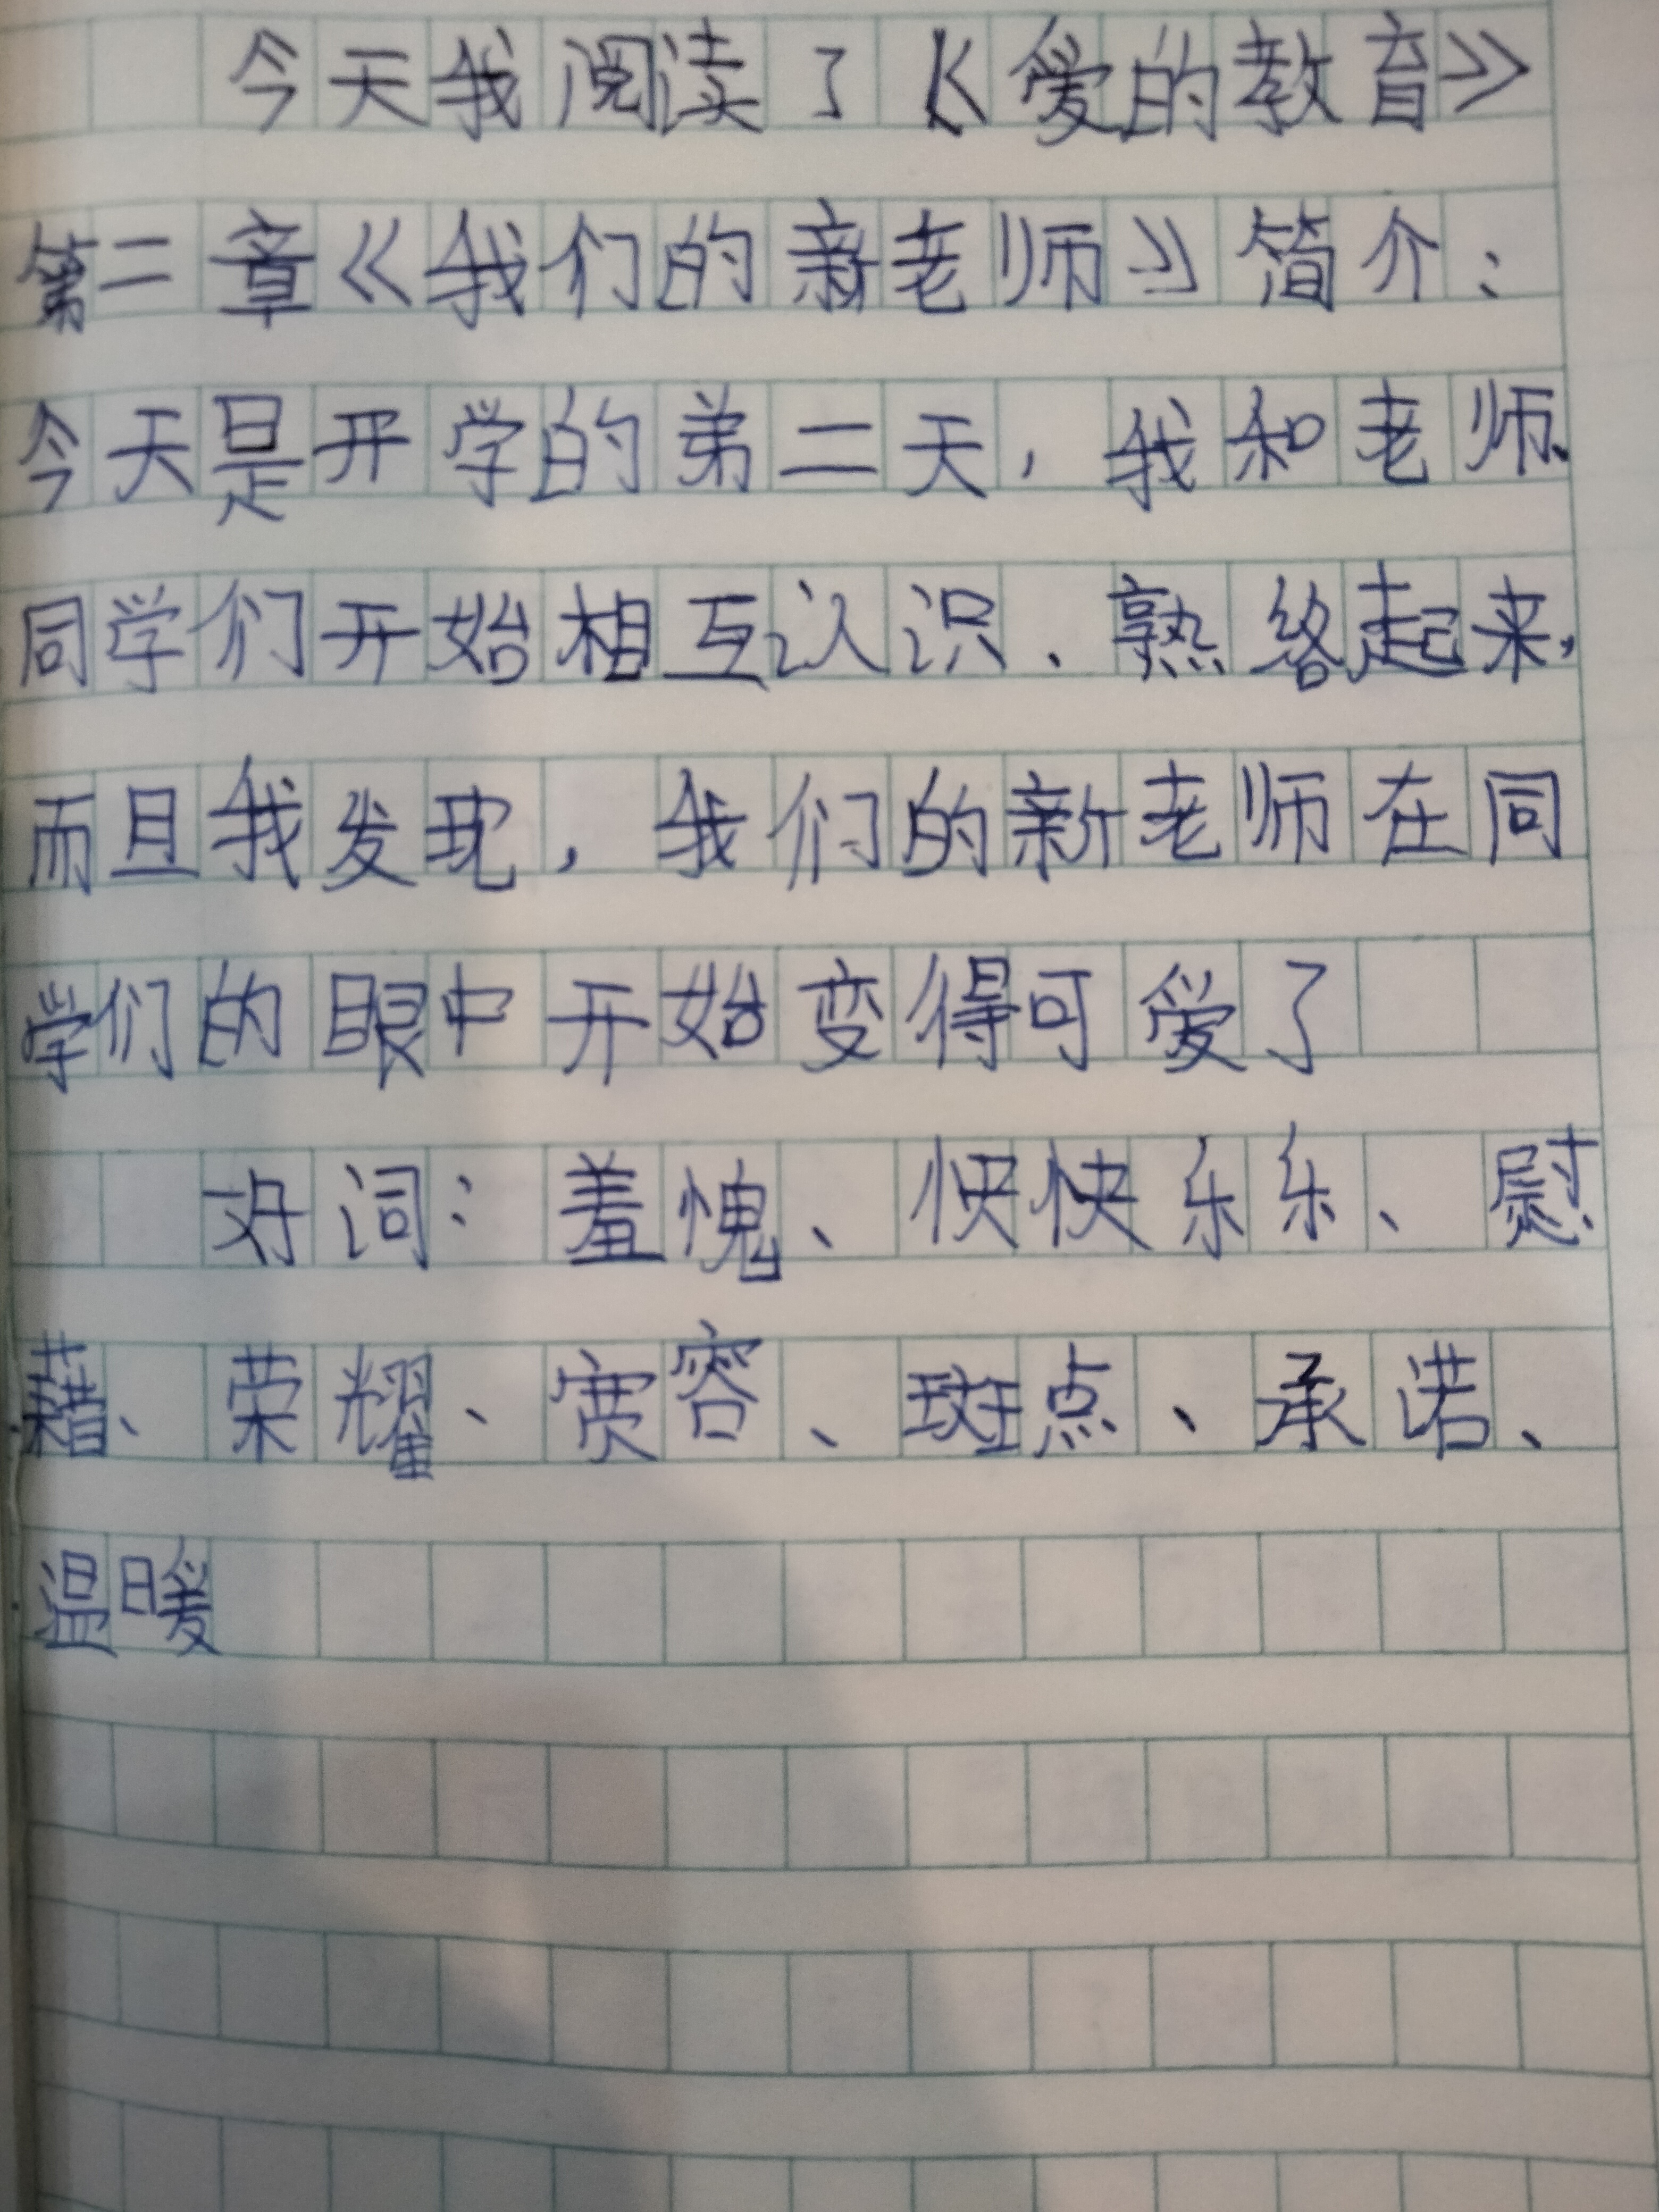 今天我阅读了《爱的教育》
第二章《我们的新老师》简介：
今天是开学的弟二天，我和老师、
同学们开始相互认识、熟络起来，
而且我发现，我们的新老师在同
学们的眼中开始变得可爱了
好词：羞愧、快快乐乐、慰
藉、荣耀、宽容、斑点、承诺、
温暖